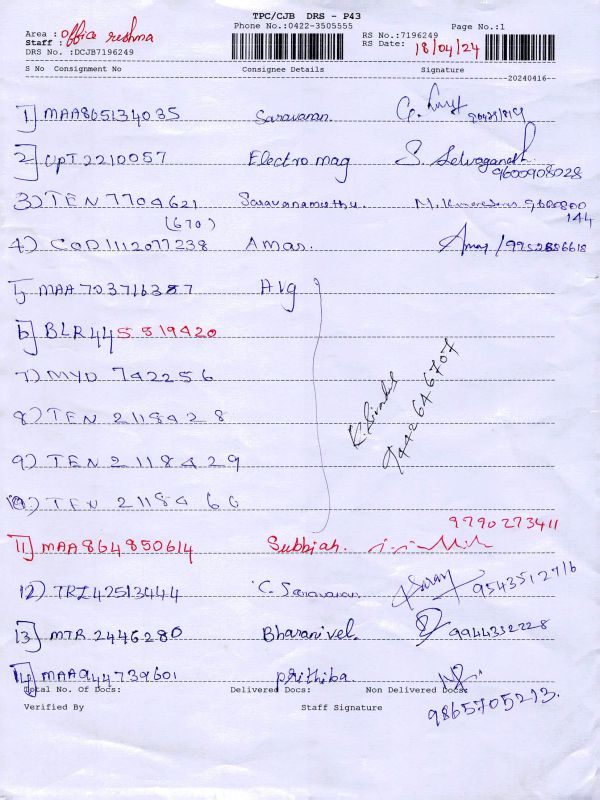 TPC/CJB DRS - P43
Phone No.:0422-3505555
Page No.:1
Area : office reshma
Staff :
RS No.:7196249
RS Date: 18/04/24
DRS No. :DCJB7196249
S No Consignment No Consignee Details Signature
20240416--
1) MAA865134035 Saravanan.
2) UPT2210057 Electro mag S. Selvaganesh 9600908028
3) TEN 7704621 Saravanamuthu 9600800
(670) 144
4) COD1112077238 Amar. Amar /
5) MAA703716387 Alg
6) BLR445519420
7) MYD 742256
K.
9442646707
8) TEN 2118428
9) TEN 2118429
10) TEN 211846 6
9790273411
11) MAA864850614 Subbiah.
12) TRZ42513444 C. Saravanan Saran 9543512716
13) MTR 2446280 Bharanivel. 9944352228
14) MAA944739601 Prithiba.
Total No. Of Docs: Delivered Docs: Non Delivered Docs:
9865705213.
Verified By Staff Signature